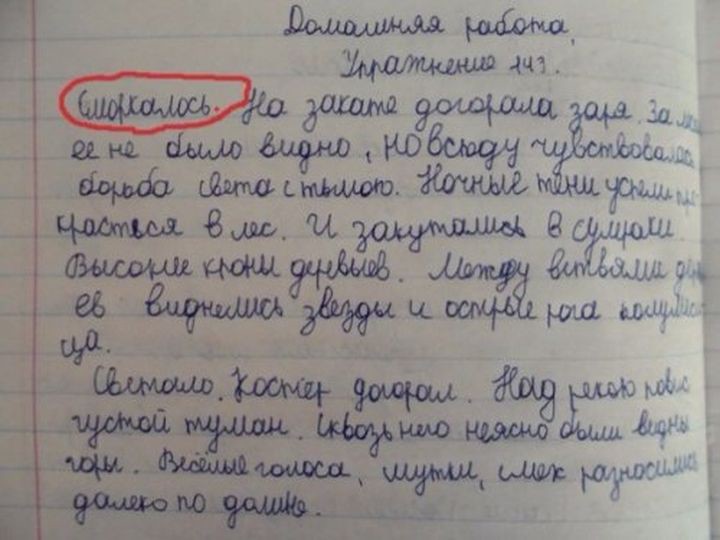 Домашняя работа.
Упражнение 143.
Сморкалось. На закате догорала заря. За
ее не было видно, но всюду чувствовалась
борьба света с тьмою. Ночные тени успели про-
красться в лес. И закутались в сумраки.
Высокие крони деревьев. Между ветвями дерь
ев виднелись звезды и острые рога полумеся
ца.
Светало. Костёр догорал. Над рекою повис
густой туман. Сквозь него неясно были видны
горы. Весёлые голоса, шутки, смех разносились
далеко по долине.